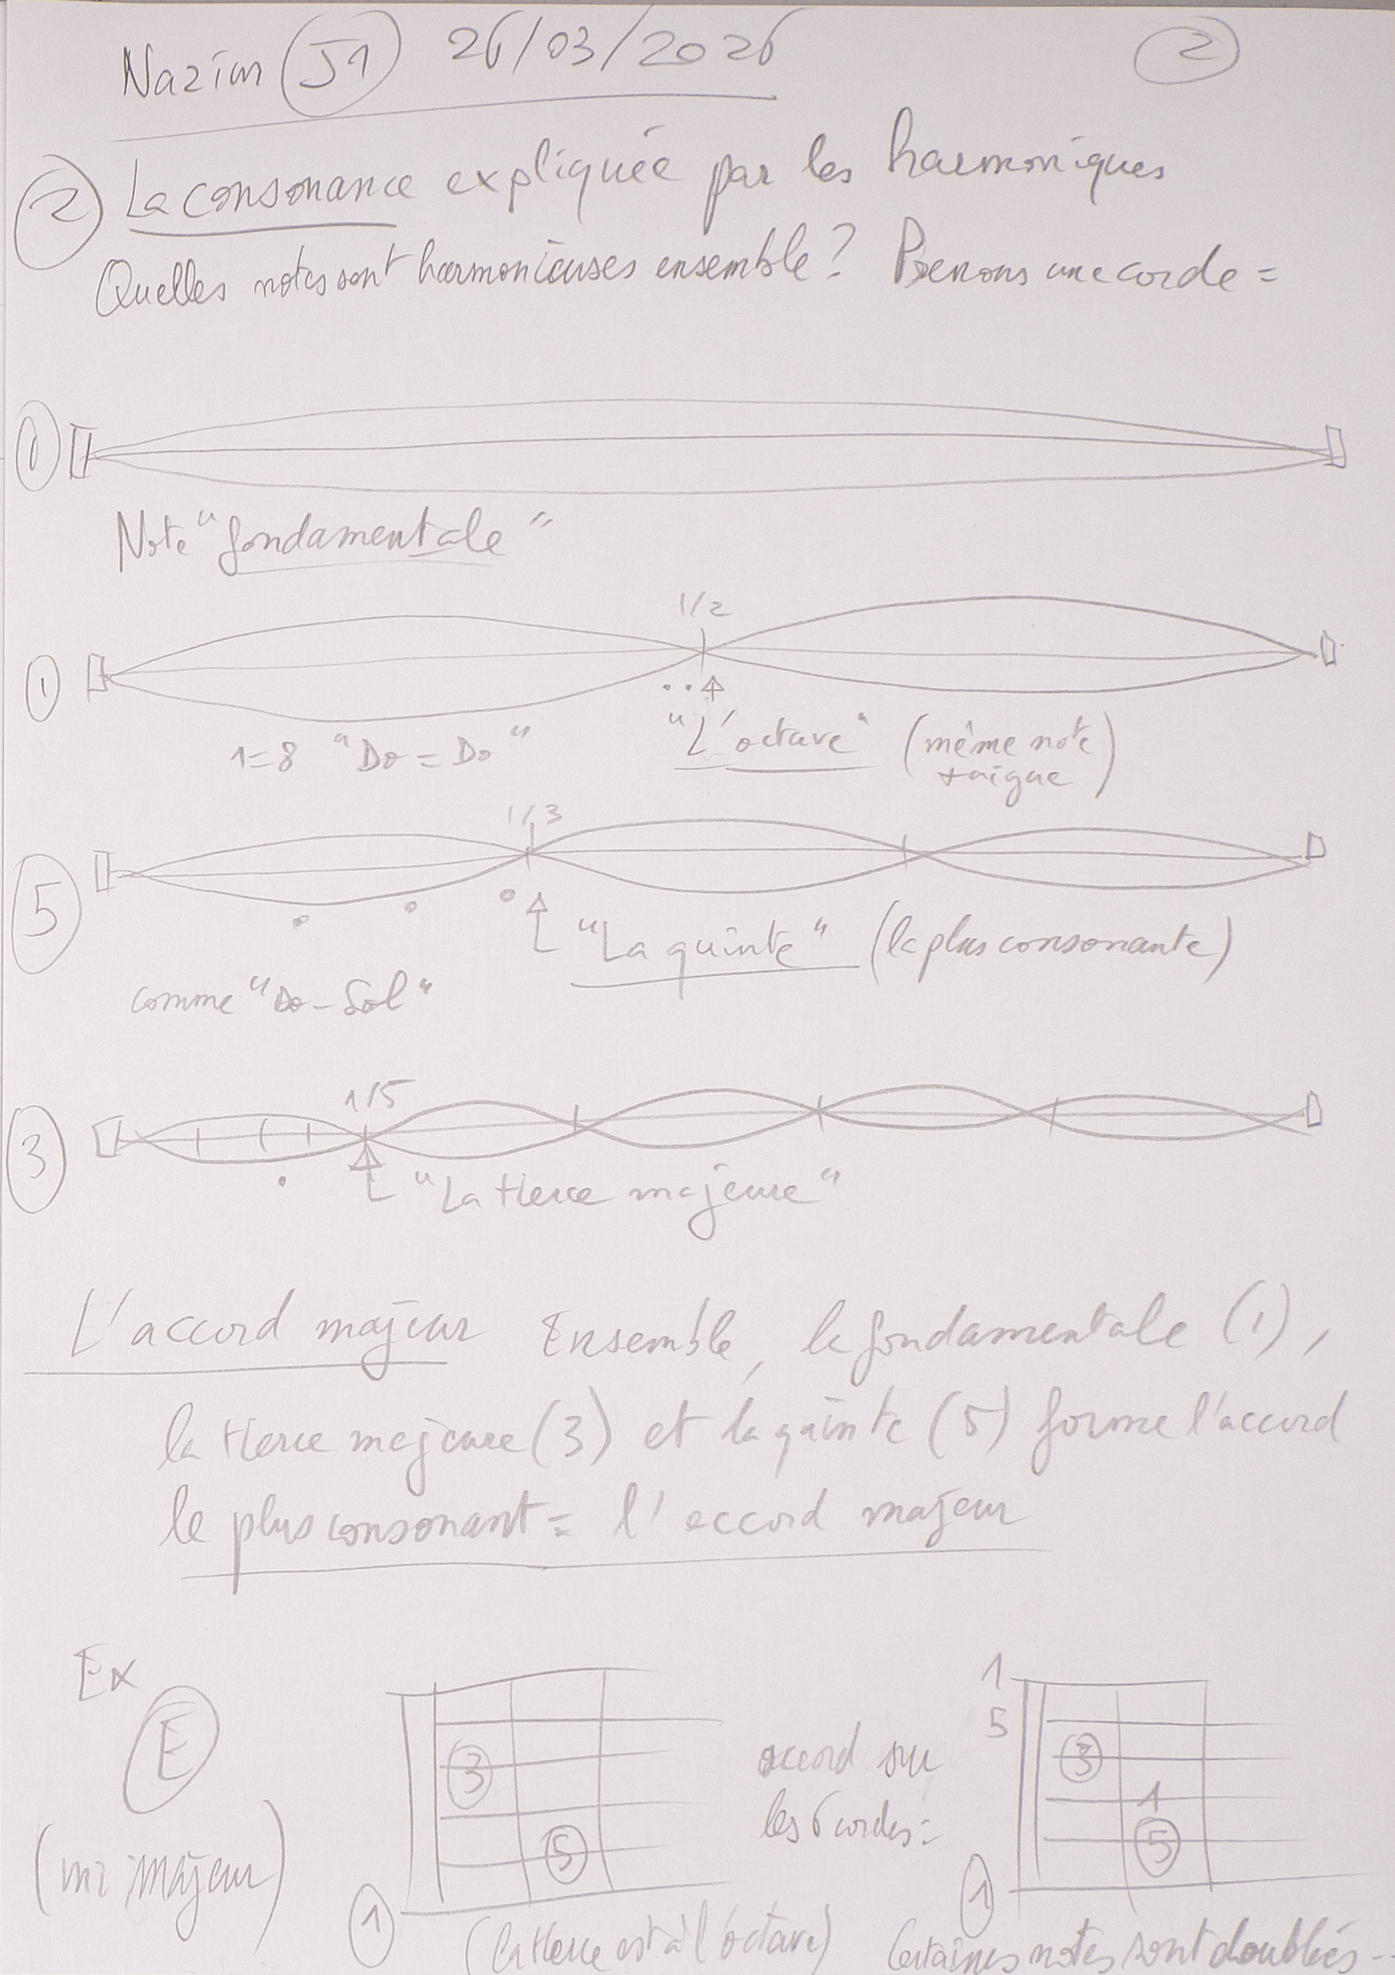 Nazim J1 26/03/2026 2
2 La consonance expliquée par les harmoniques
Quelles notes sont harmonieuses ensemble? Prenons une corde =
1
Note "fondamentale"
1/2
1
1=8 "Do = Do" "L'octave" (même note
+ aigue)
1/3
5
"La quinte" (la plus consonante)
comme "Do - Sol"
1/5
3
"La tierce majeure"
L'accord majeur Ensemble, la fondamentale (1),
la tierce majeure (3) et la quinte (5) forme l'accord
le plus consonant = l'accord majeur
Ex
E
(mi majeur)
3
5
1
(la tierce est à l'octave)
accord sur
les 6 cordes =
1
5
3
1
5
1
Certaines notes sont doublées...